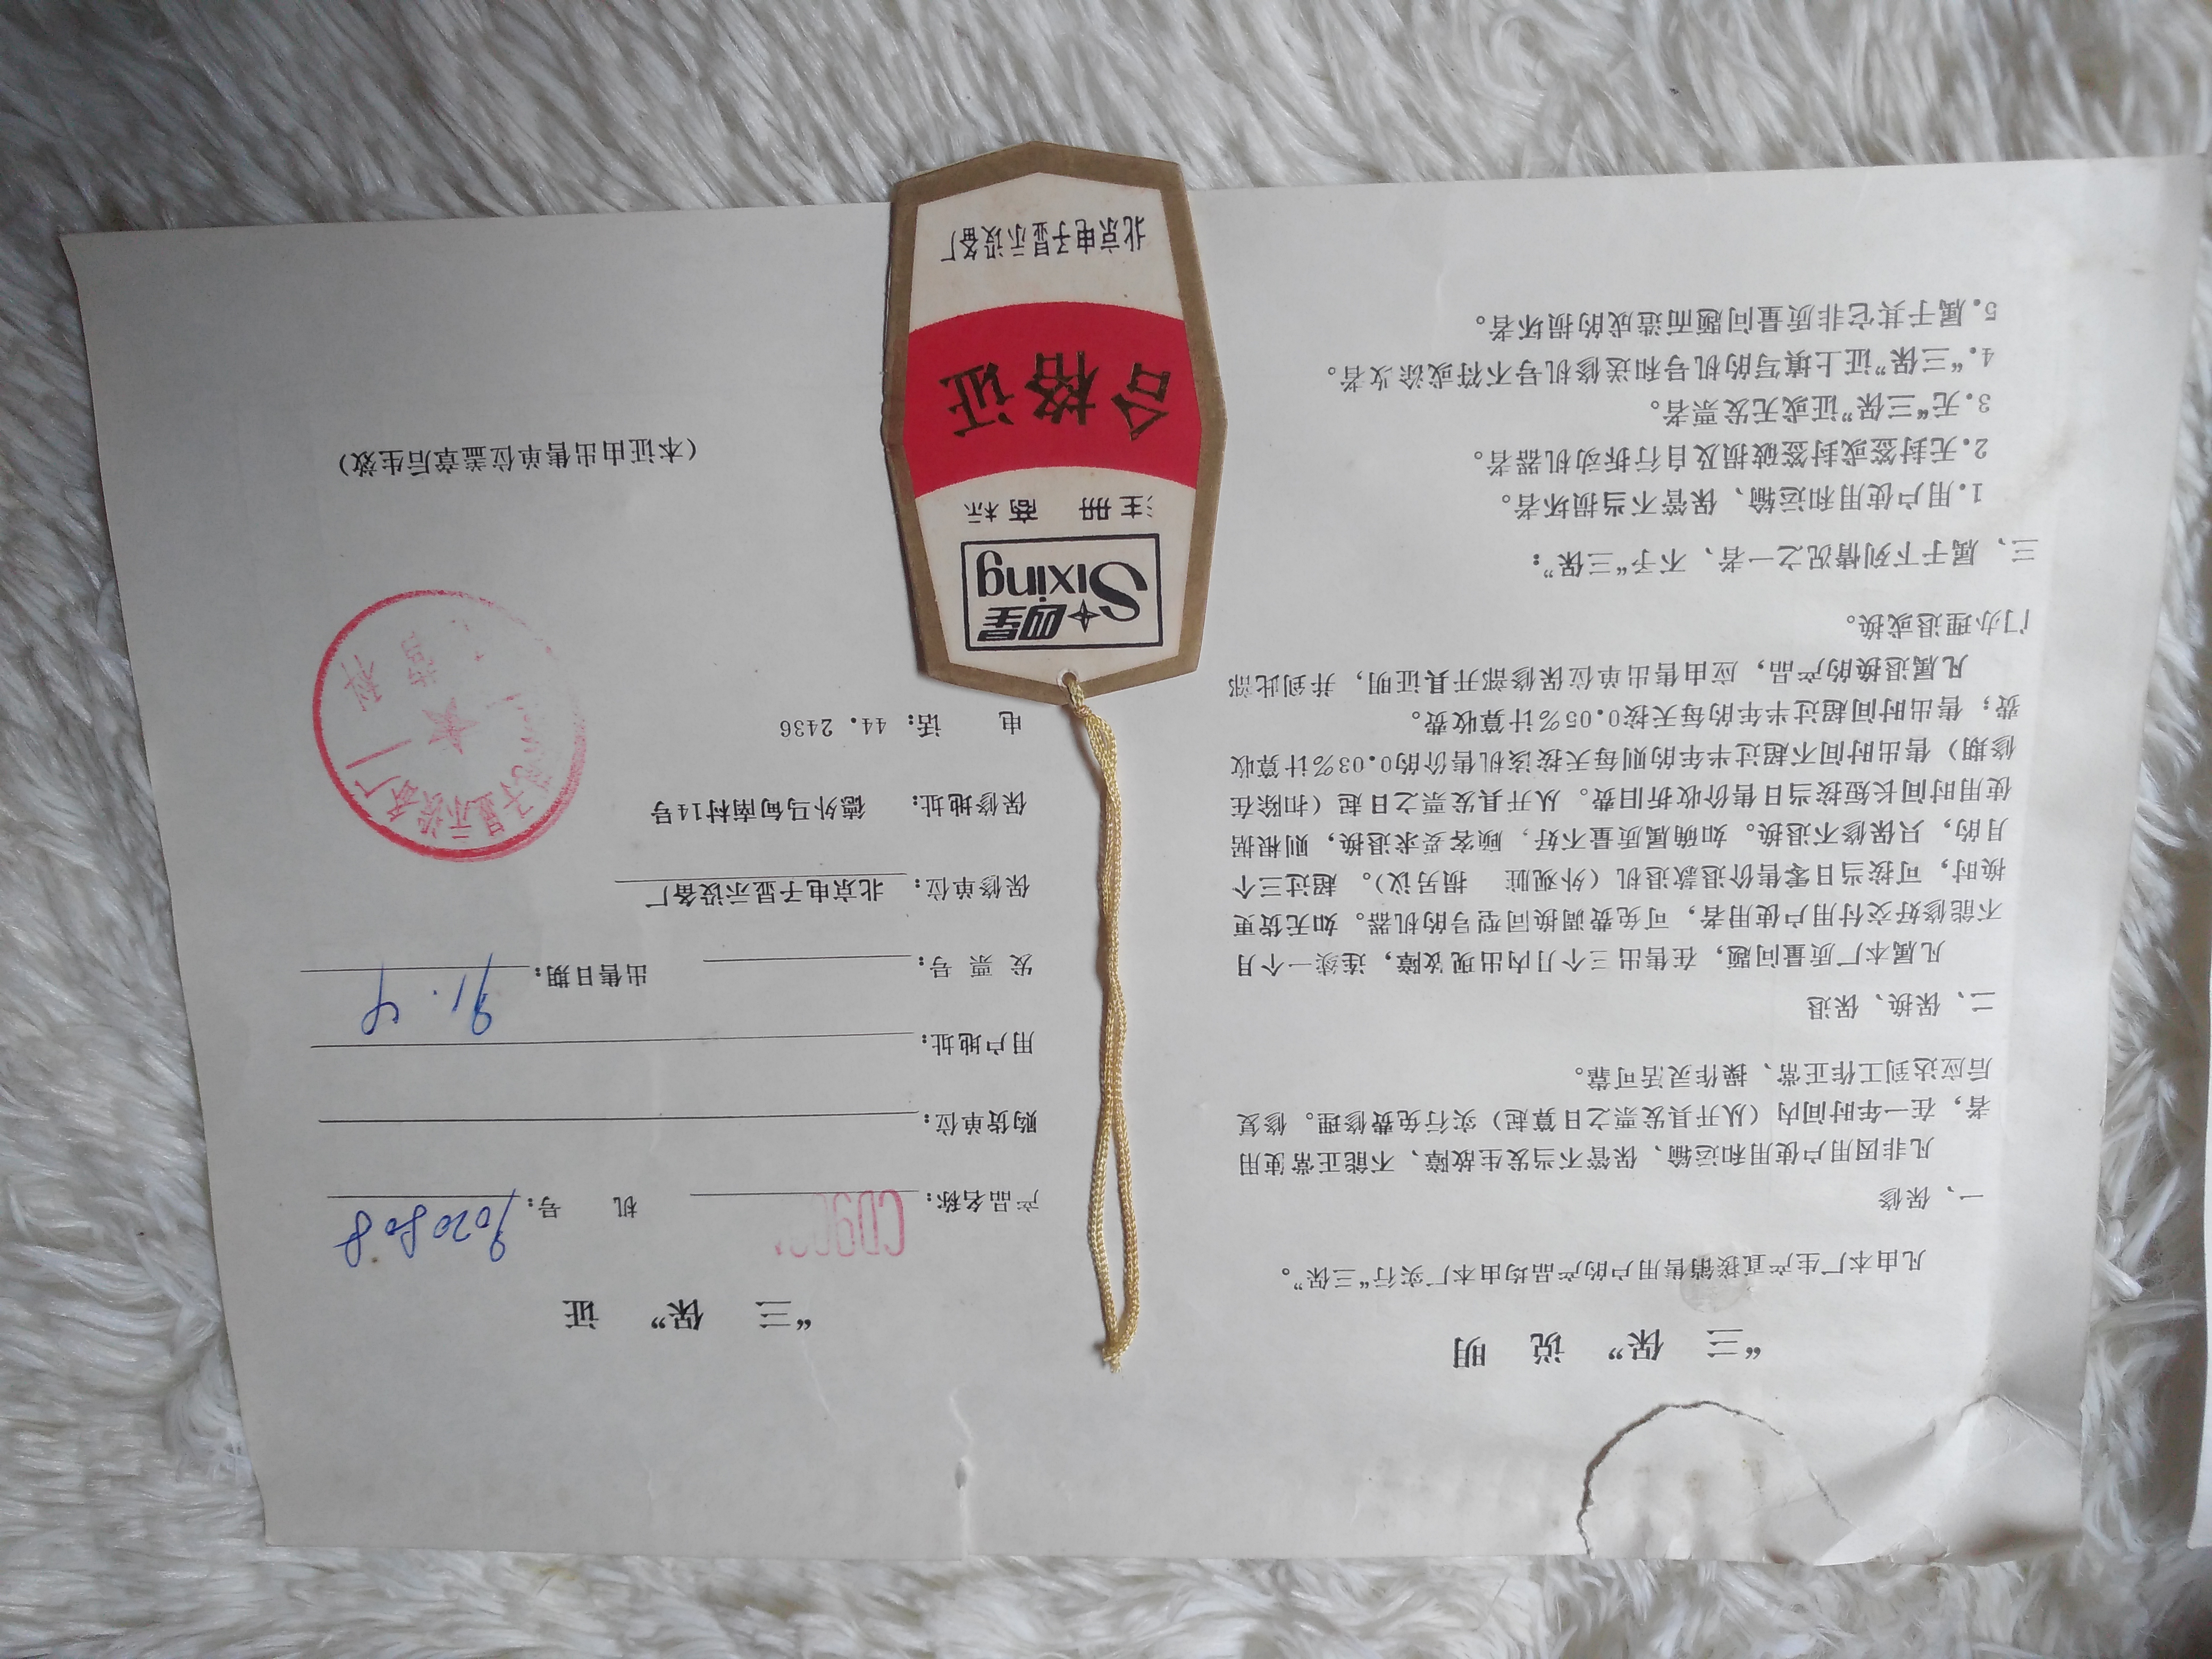 “三 保” 说 明
凡由本厂生产直接销售用户的产品均由本厂实行“三保”。
一、保修
凡非因用户使用和运输、保管不当发生故障、不能正常使用
者，在一年时间内（从开具发票之日算起）实行免费修理。修复
后应达到工作正常、操作灵活可靠。
二、保换、保退
凡属本厂质量问题，在售出三个月内出现故障，连续一个月
不能修好交付用户使用者，可免费调换同型号的机器。如无货更
换时，可按当日零售价退款退机（外观脏 损另议）。超过三个
月的，只保修不退换。如确属质量不好，顾客要求退换，则根据
使用时间长短按当日售价收折旧费。从开具发票之日起（扣除在
修期）售出时间不超过半年的则每天按该机售价的0.03%计算收
费；售出时间超过半年的每天按0.05%计算收费。
凡属退换的产品，应由售出单位保修部开具证明，并到此部
门办理退或换。
三、属于下列情况之一者、不予“三保”：
1.用户使用和运输、保管不当损坏者。
2.无封签或封签破损及自行拆动机器者。
3.无“三保”证或无发票者。
4.“三保”证上填写的机号和送修机号不符或涂改者。
5.属于其它非质量问题而造成的损坏者。
四星
Sixing
注册 商标
合格证
北京电子显示设备厂
“三 保” 证
产品名称： 机 号：9020808
购货单位：
用户地址：
发 票 号： 出售日期：91.4
保修单位：北京电子显示设备厂
保修地址：德外马甸南村14号
电 话：44.2436
子显示设备厂
（本证由出售单位盖章后生效）